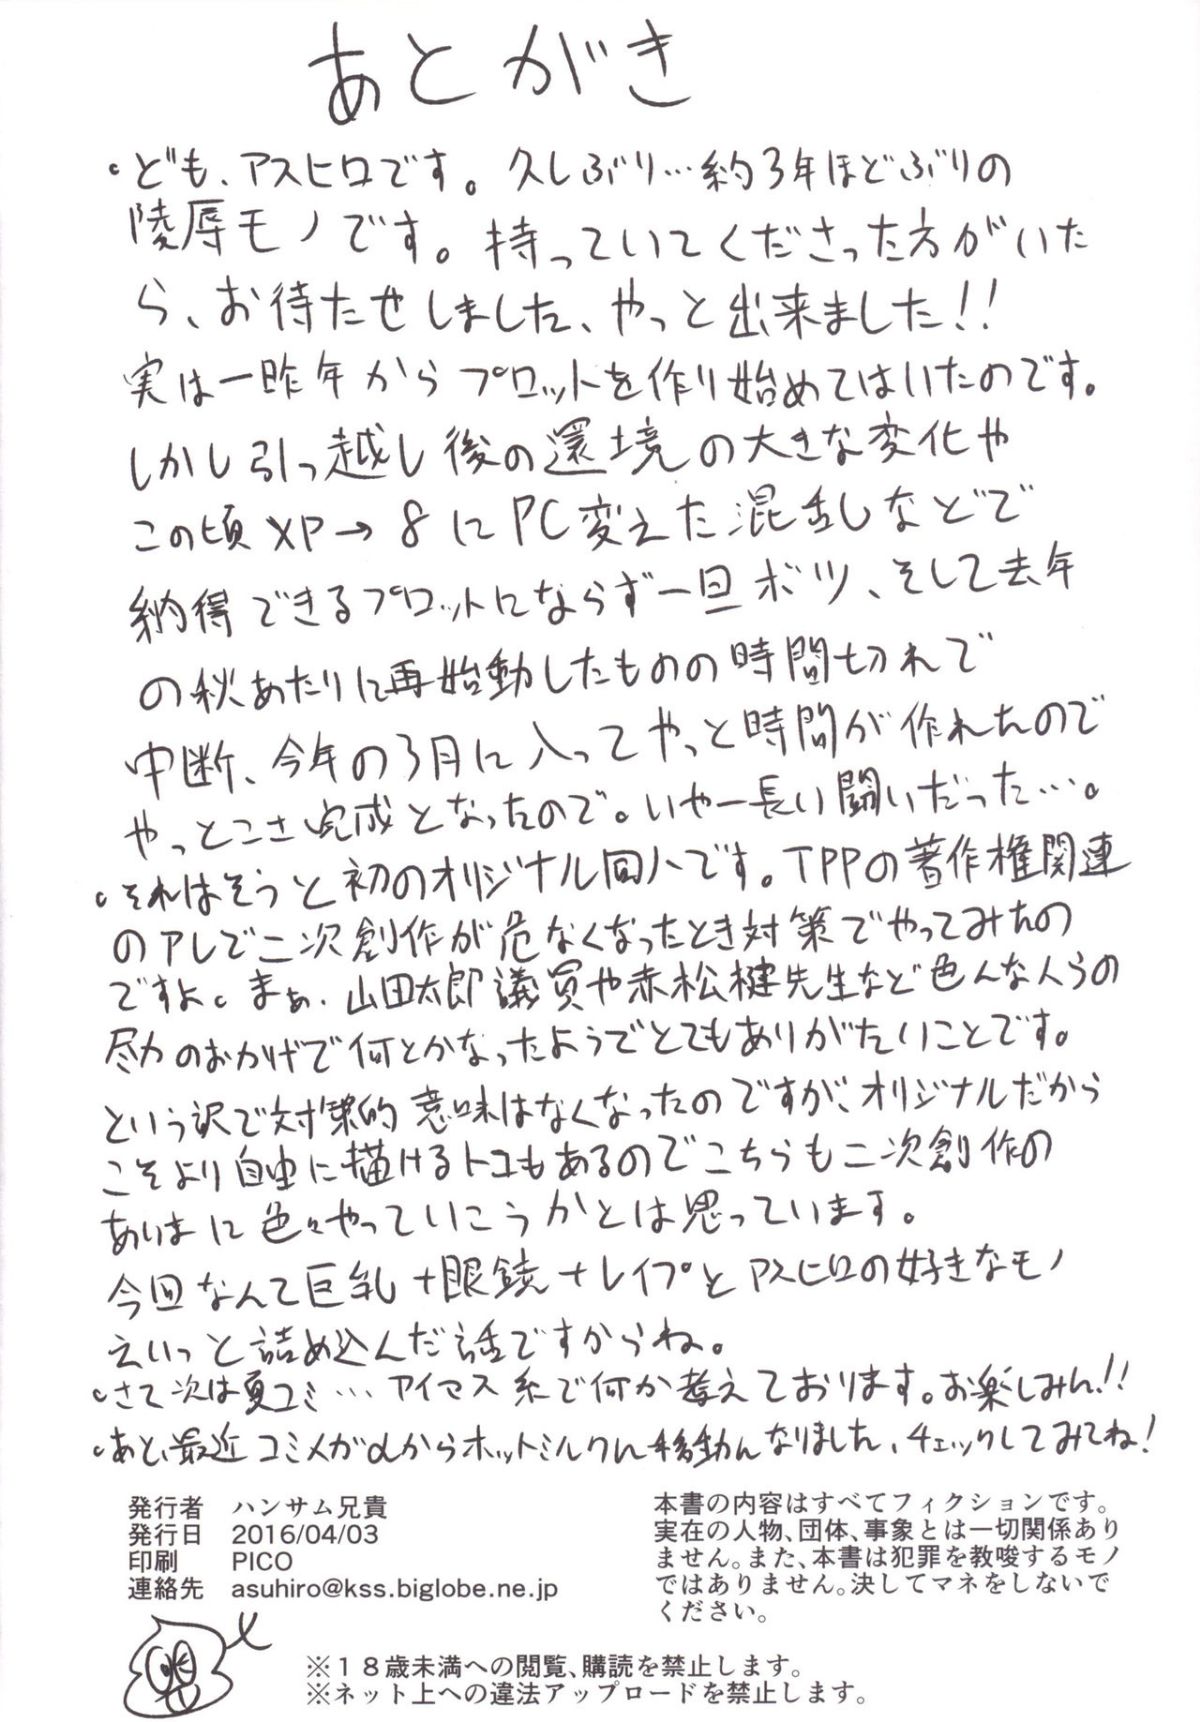 あとがき
・ども、アスヒロです。久しぶり…約3年ほどぶりの
陵辱モノです。持っていてくださった方がいた
ら、お待たせしました、やっと出来ました!!
実は一昨年からプロットを作り始めてはいたのです。
しかし引っ越し後の環境の大きな変化や
この頃XP→8にPC変えた混乱しなどで
納得できるプロットにならず一旦ボツ、そして去年
の秋あたりに再始動したものの時間切れで
中断、今年の3月に入ってやっと時間が作れたので
やっとこさ完成となったので。いやー長い闘いだった…。
・それはそうと初のオリジナル同人です。TPPの著作権関連
のアレで二次創作が危なくなったとき対策でやってみたの
ですよ。まぁ、山田太郎議員や赤松健先生など色んな人らの
尽力のおかげで何とかなったようでとてもありがたいことです。
という訳で対策的意味はなくなったのですが、オリジナルだから
こそより自由に描けるトコもあるのでこちらも二次創作の
あいまに色々やっていこうかとは思っています。
今回なんて巨乳+眼鏡+レイプとアスヒロの好きなモノ
えいっと詰め込んだ話ですからね。
・さて次は夏コミ…アイマス系で何か考えております。お楽しみん!!
・あと、最近コミメガαからホットミルクに移動になりました、チェックしてみてね!
発行者 ハンサム兄貴
発行日 2016/04/03
印刷 PICO
連絡先 asuhiro@kss.biglobe.ne.jp
本書の内容はすべてフィクションです。
実在の人物、団体、事象とは一切関係あり
ません。また、本書は犯罪を教唆するモノ
ではありません。決してマネをしないで
ください。
※18歳未満への閲覧、購読を禁止します。
※ネット上への違法アップロードを禁止します。